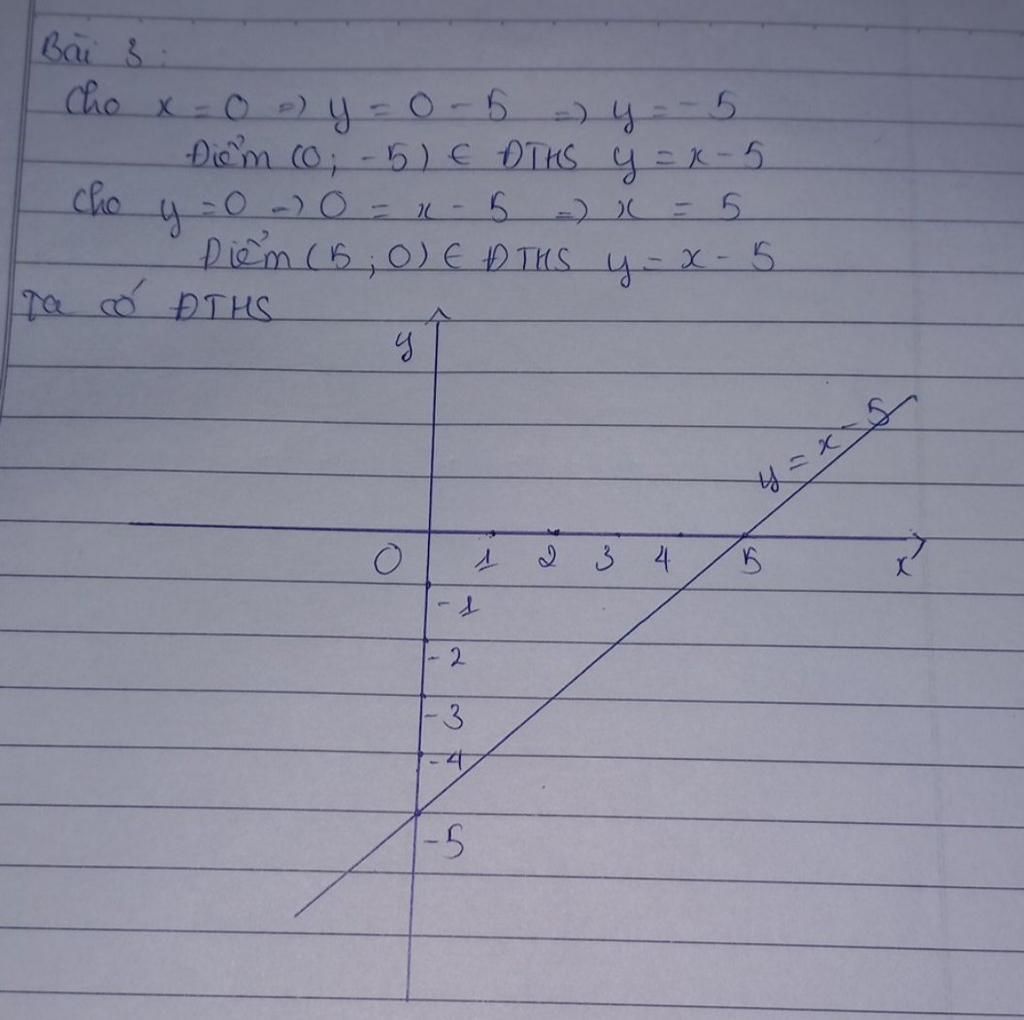 Bài 3:
Cho x = 0 => y = 0 - 5 => y = -5
Điểm (0; -5) ∈ ĐTHS y = x - 5
Cho y = 0 => 0 = x - 5 => x = 5
Điểm (5; 0) ∈ ĐTHS y = x - 5
Ta có ĐTHS
y
y = x - 5
0 1 2 3 4 5 x
-1
-2
-3
-4
-5